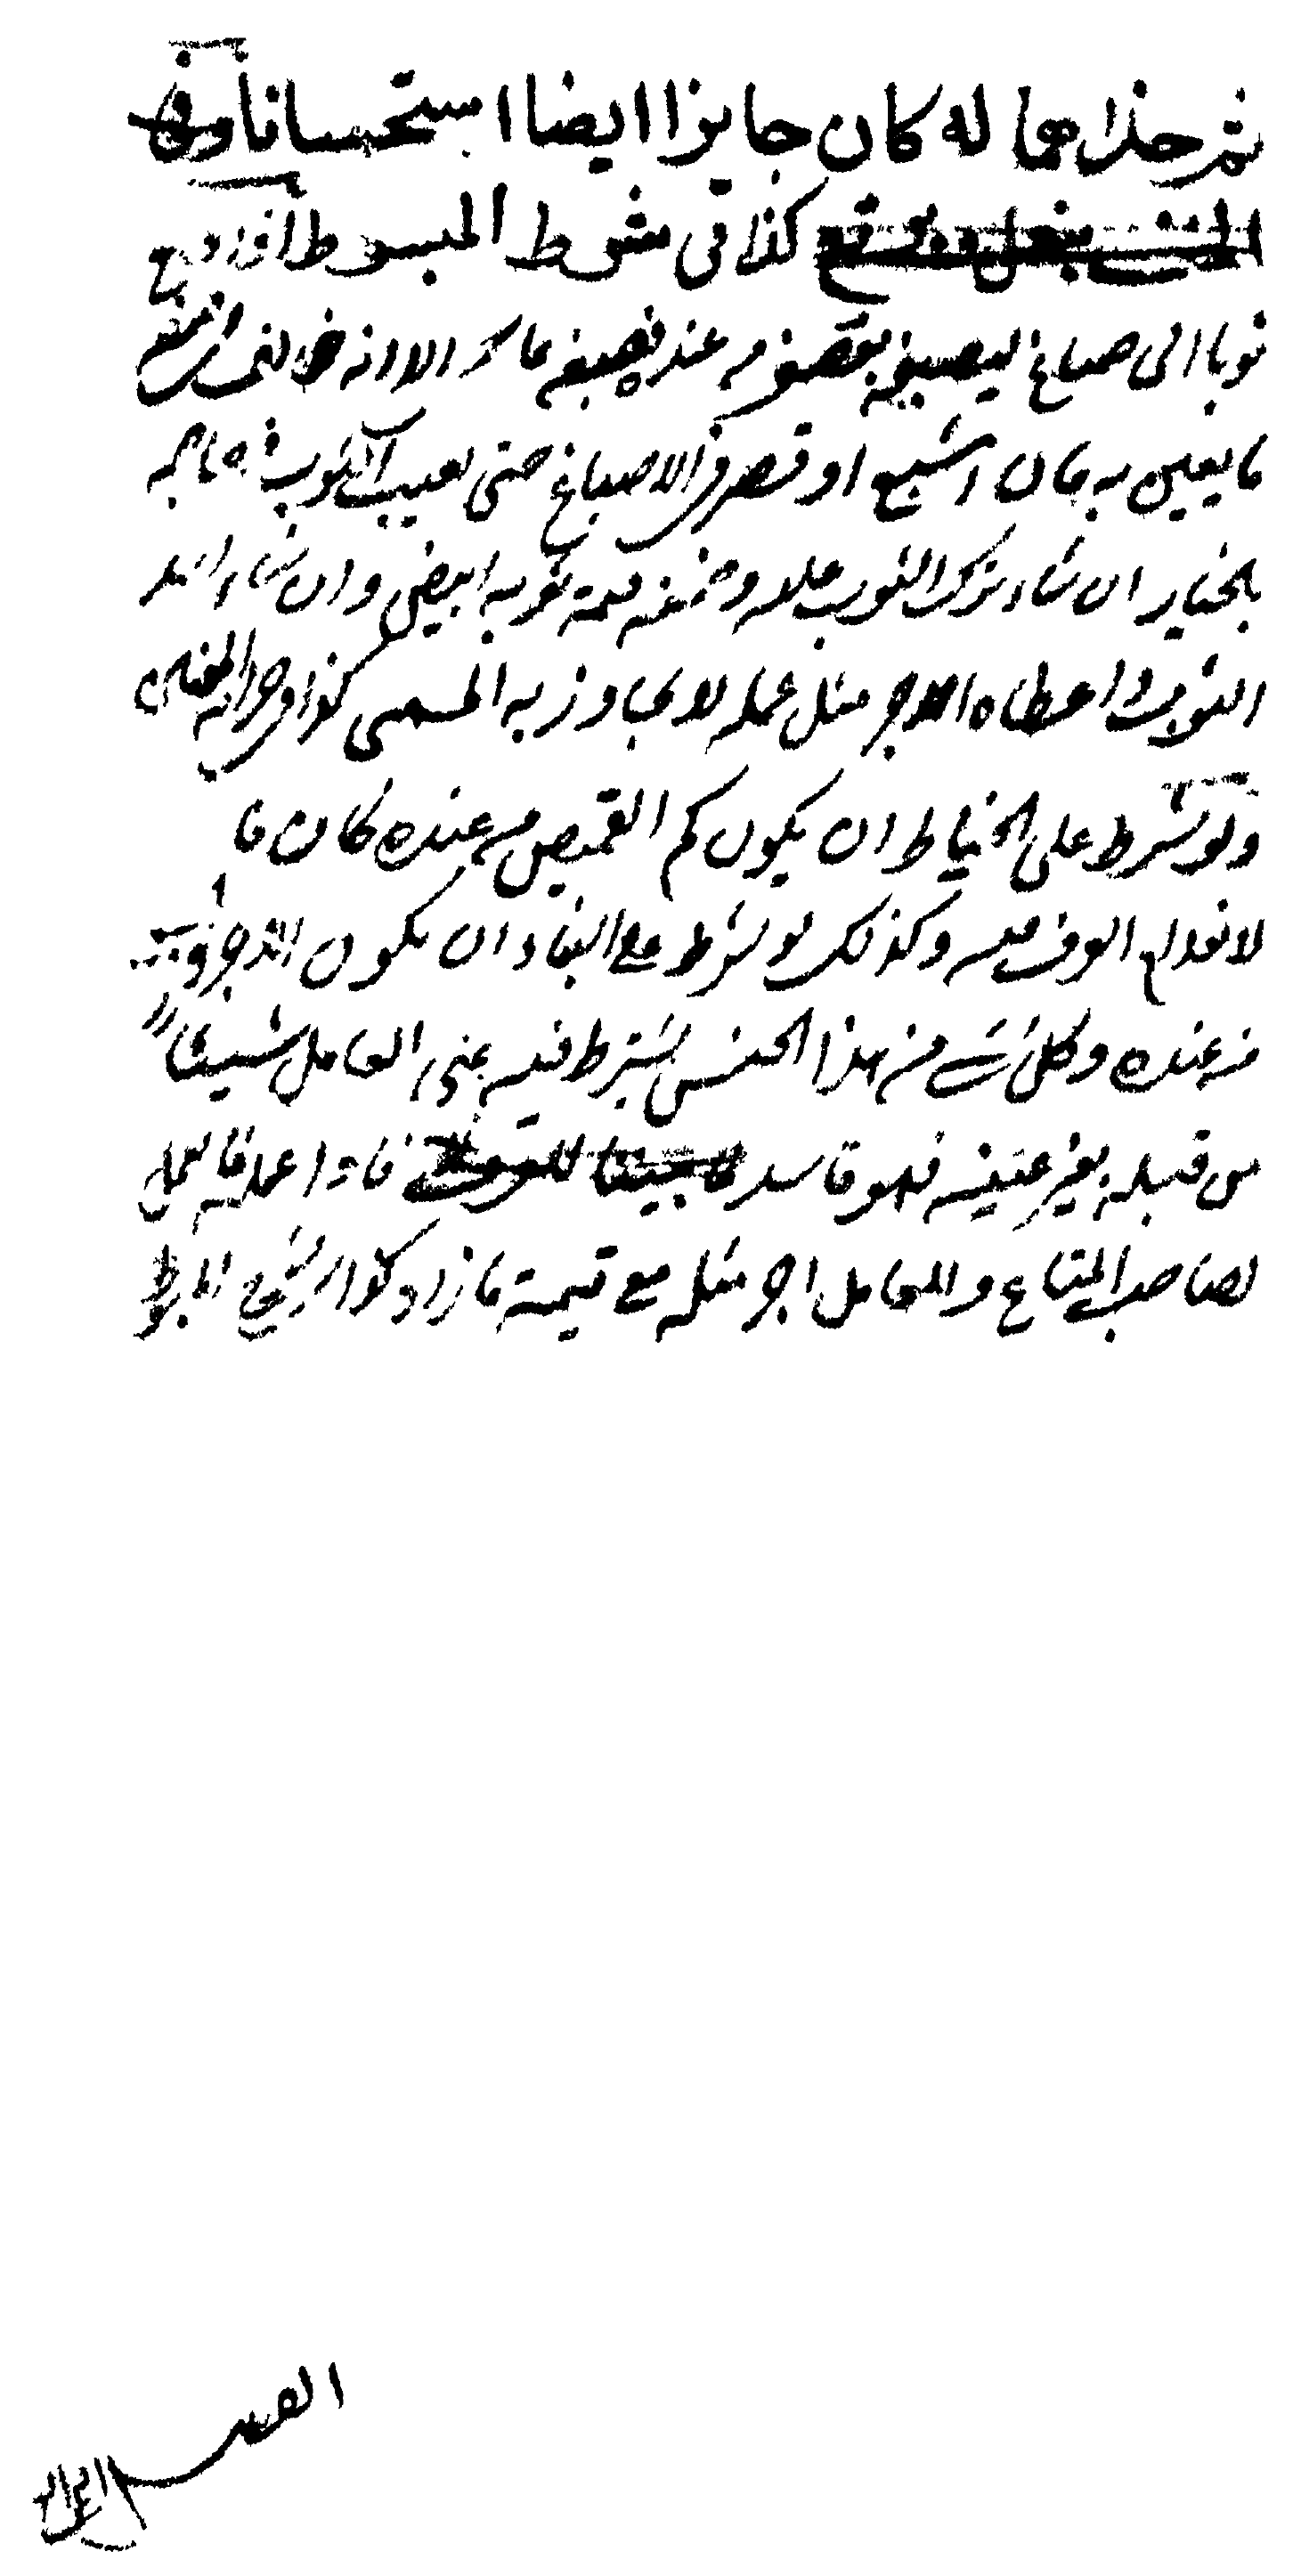 ثم حذاهما له كان جايزا ايضا استحسانا وفى
كذا فى شرط المبسوط اذا دفع
ثوبا الى صباغ ليصبغه بعصفر من عنده فصبغه الا انه خالف فى صفة
ما يعين به بان اشبع او قصر فى الاصباغ حتى تعيب الثوب فصاحبه
بالخيار ان شاء ترك الثوب عليه وضمنه قيمة ثوبه ابيض وان شاء اخذ
الثوب واعطاه اجر مثل عمله لا يجاوز به المسمى كذا فى خزانة المفتين
ولو شرط على الخياط ان يكون كم القميص من عنده كان فا
لانعدام العرف فيه وكذلك لو شرط على البناء ان يكون الاجر
من عنده وكل شے من هذا الجنس يشترط فيه على العامل شيئا
من قبله بغير عينه فهو فاسد فاذا عمله فالعمل
لصاحب المتاع وللعامل اجر مثله مع قيمة ما زاد كذا فى المبسوط